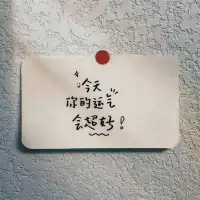 今天
你的运气
会超好!